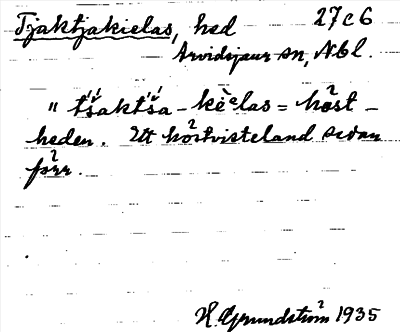 Tjaktjakielas, hed 27c6
Arvidsjaur sn, Nbl.
" tś̌aktś̌a - kè̜ᵉlas = höst -
heden. Ett höstvisteland sedan
förr.
H. Grundström 1935